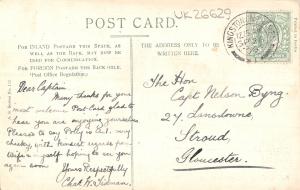 UK26629
POST CARD.
For INLAND Postage this Space, as
well as the Back, may now be
used for Communication.
For FOREIGN Postage the Back only.
(Post Office Regulation).
Dear Captain
Many thanks for your
most welcome Post Card glad to
hear you are enjoying yourselves
Pleased to say Polly is but very
cheeky, with kindest regards from
Wife & myself hoping to see you
again soon
Yours Respectfully
Chas. W.
The Hon
Capt Nelson Byng.
27 Lansdowne
Stroud
Gloucester.
KINGSTON